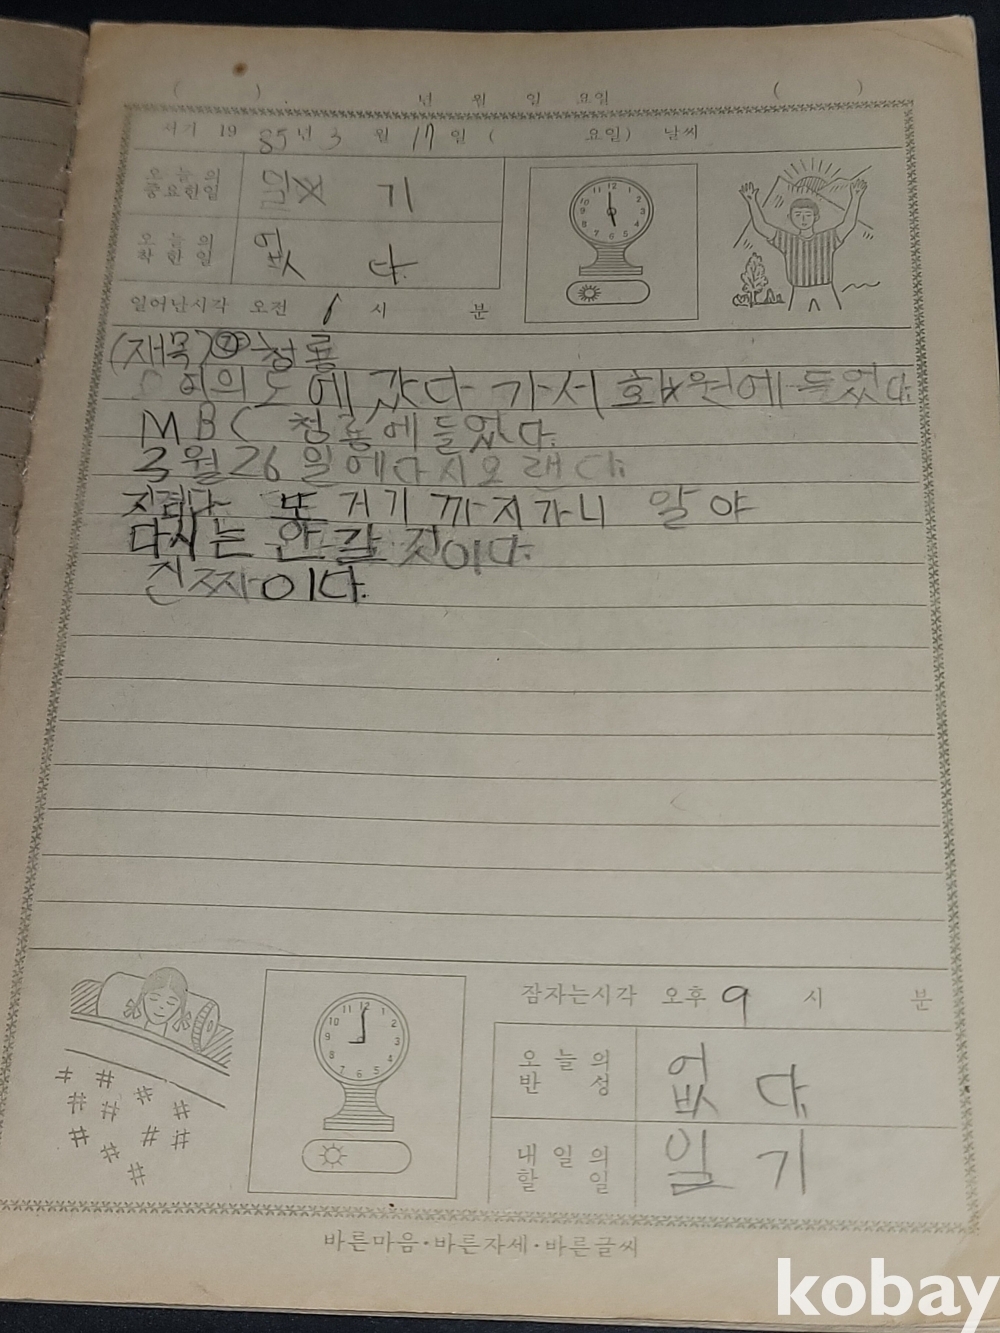 ( ) 년 월 일 요일 ( )
서기 19 85년 3 월 17일 ( 요일) 날씨
오늘의
중요한일 기
오늘의
착한일 없다.
일어난시각 오전 시 분
(재목) 청룡
여의도에 갔다 가서 회원에 들었다.
MBC 청룡에 들었다.
3월 26일에 다시 오래다.
지겹다 또 거기 까지 가니 말야
다시는 안갈 것이다.
진짜이다.
잠자는시각 오후 9 시 분
오늘의
반성 없다.
내일의
할일 일기
바른마음·바른자세·바른글씨
kobay